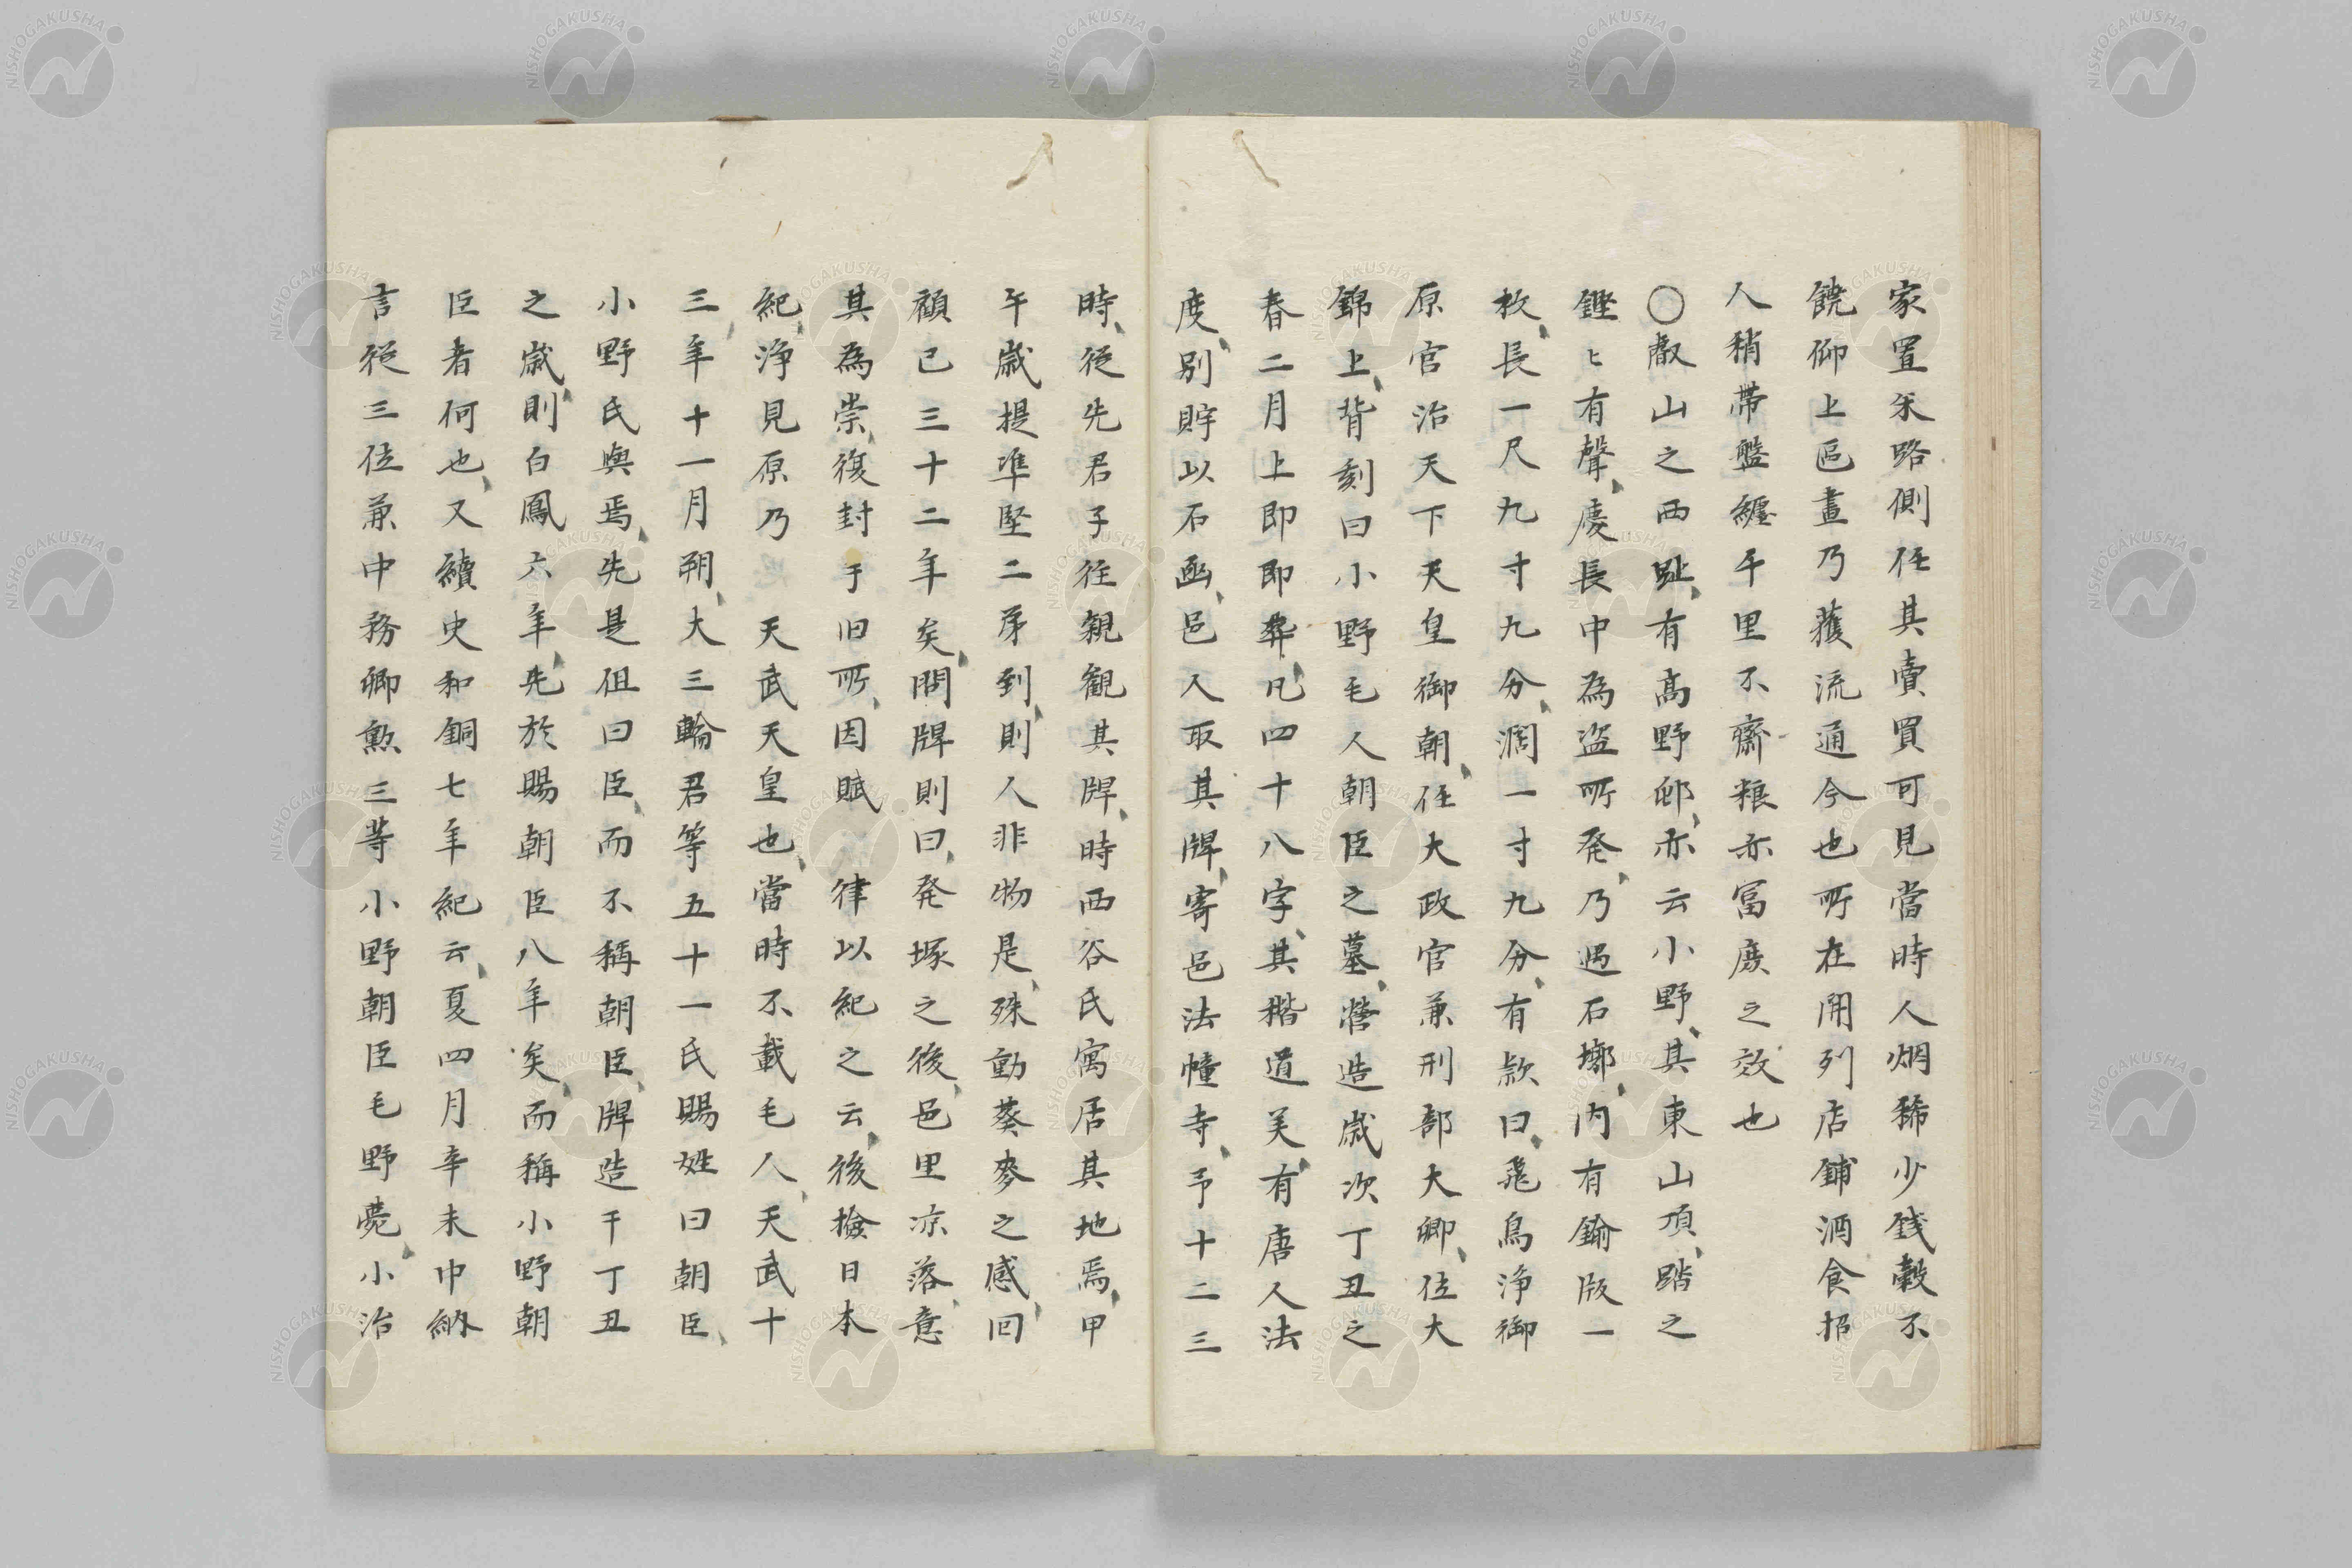 家置米路側任其賣買可見當時人烟稀少錢穀不
饒仰上區畫乃獲流通今也所在開列店鋪酒食招
人稍帶盤纏千里不齋粮亦冨庶之效也
〇叡山之西趾、有髙野邨、亦云小野、其東山頂、踏之
鏗ヒ有聲、慶長中為盗所発、乃遇石墎、内有鍮版一
枚、長一尺九寸九分、濶一寸九分、有款曰、飛鳥浄御
原宮治天下天皇御朝、任大政官兼刑部大卿、位大
錦上、背刻曰小野毛人朝臣之墓、營造歳次丁丑之
春二月上即即葬、凡四十八字、其楷道美、有唐人法
度、別貯以石凾、邑人取其牌、寄邑法幢寺、予十二三
時、従先君子往親観其牌、時西谷氏寓居其地焉、甲
午歳提準堅二弟到、則人非物是、殊動葵麥之感、回
顧已三十二年矣、問牌則曰、発塚之後、邑里凉落、意
其為崇、復封于旧所、因賦 律以紀之云、後撿日本
紀、浄見原乃 天武天皇也、當時不載毛人、天武十
三年十一月朔、大三輪君等五十一氏賜姓曰朝臣、
小野氏與焉、先是但曰臣、而不稱朝臣、牌造干丁丑
之歳、則白鳳六年、先於賜朝臣八年矣、而稱小野朝
臣者何也、又續史和銅七年紀云、夏四月辛未中納
言従三位兼中務卿勲三等小野朝臣毛野薨、小治